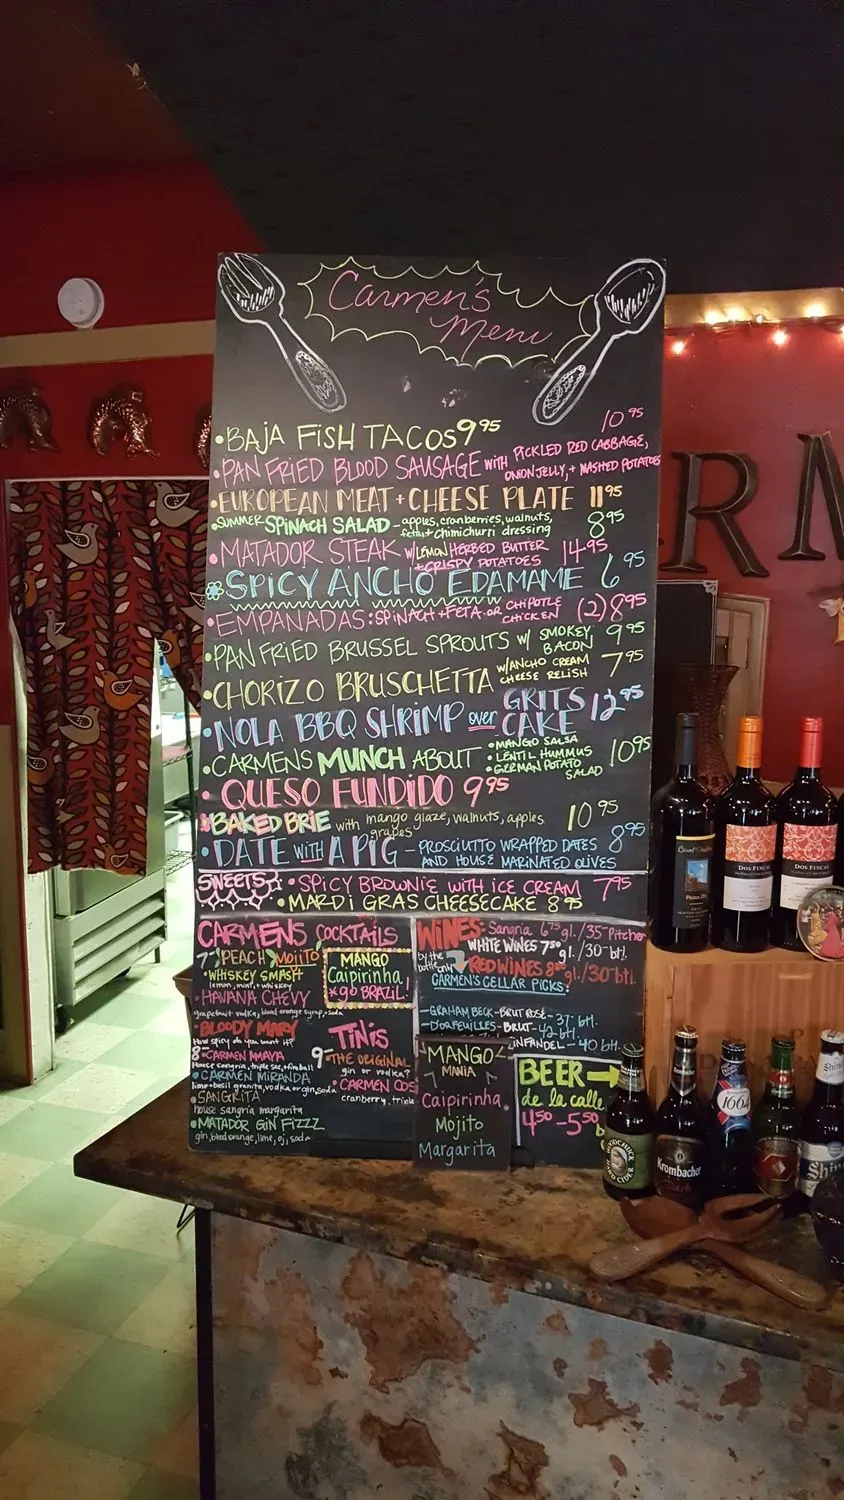 Carmen's
Menu
• BAJA FISH TACOS 9 95
• PAN FRIED BLOOD SAUSAGE WITH PICKLED RED CABBAGE, 10 95
ONION JELLY, + MASHED POTATOES
• EUROPEAN MEAT + CHEESE PLATE 11 95
• SUMMER SPINACH SALAD - apples, cranberries, walnuts, 8 95
feta + chimichurri dressing
• MATADOR STEAK W/ LEMON HERBED BUTTER 14 95
+ CRISPY POTATOES
SPICY ANCHO EDAMAME 6 95
• EMPANADAS: SPINACH + FETA OR CHIPOTLE CHICKEN (2) 8 95
• PAN FRIED BRUSSEL SPROUTS W/ SMOKEY BACON 9 95
• CHORIZO BRUSCHETTA W/ ANCHO CREAM CHEESE RELISH 7 95
• NOLA BBQ SHRIMP OVER GRITS CAKE 12 95
• CARMENS MUNCH ABOUT • MANGO SALSA 10 95
• LENTIL HUMMUS
• GERMAN POTATO SALAD
• QUESO FUNDIDO 9 95
BAKED BRIE with mango glaze, walnuts, apples 10 95
grapes
• DATE WITH A PIG - PROSCIUTTO WRAPPED DATES 8 95
AND HOUSE MARINATED OLIVES
SWEETS • SPICY BROWNIE WITH ICE CREAM 7 95
• MARDI GRAS CHEESECAKE 8 95
CARMENS COCKTAILS
7- PEACH MOJITO
• WHISKEY SMASH
lemon, mint, + whiskey
• HAVANA CHEVY
grapefruit vodka, blood orange syrup, soda
• BLOODY MARY
How spicy do you want it?
8- • CARMEN AMAYA
• CARMEN MIRANDA
lime + basil granita, vodka or gin, soda
• SANGRITA
house sangria margarita
• MATADOR GIN FIZZZ
gin, blood orange, lime, oj, soda
MANGO
Caipirinha
go BRAZIL!
TINIS
9- • THE ORIGINAL
gin or vodka?
• CARMEN COS
cranberry, triple
WINES: Sangria 6 75 gl./35- Pitcher
WHITE WINES 7 50 gl./30- btl.
by the bottle only
RED WINES 8 00 gl./30- btl.
CARMEN'S CELLAR PICKS:
- GRAHAM BECK - BRUT ROSE - 37- btl.
BRUT - 42- btl.
INFANDEL - 40 btl.
MANGO
MANIA
Caipirinha
Mojito
Margarita
BEER →
de la calle
4 50 - 5 50
RM
DOS FINCAS
DOS FINCAS
WOODCHUCK
HARD CIDER
Krombacher
1664
Shin